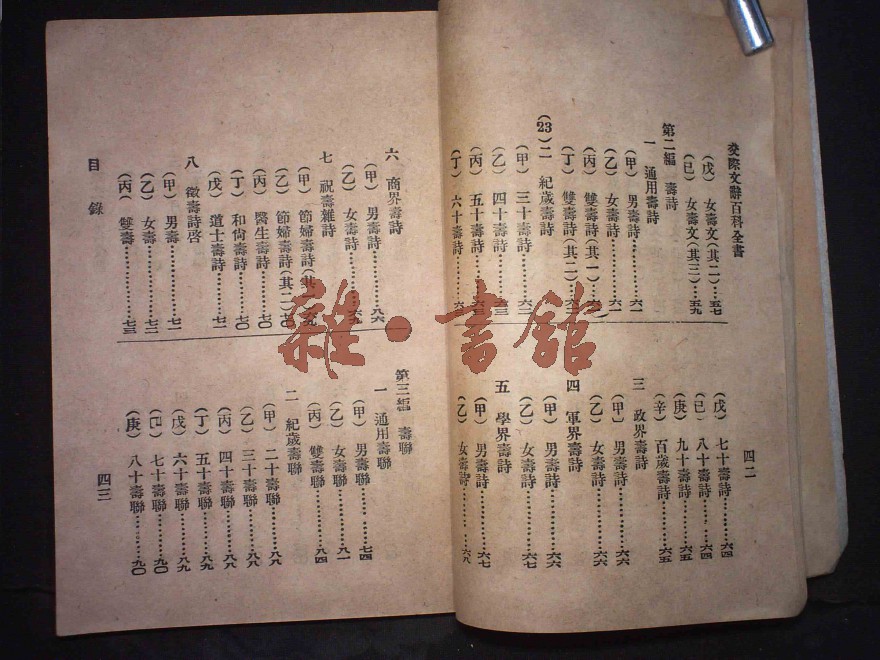 交際文辭百科全書
(戊) 女壽文(其二)…五七
(己) 女壽文(其三)…五九
第二編 壽詩
一 通用壽詩
(甲) 男壽詩………六一
(乙) 女壽詩………六一
(丙) 雙壽詩(其一)…六一
(丁) 雙壽詩(其二)…六二
(23)二 紀歲壽詩
(甲) 三十壽詩………六二
(乙) 四十壽詩………六三
(丙) 五十壽詩………六三
(丁) 六十壽詩………六
四二
(戊) 七十壽詩………六四
(己) 八十壽詩………六四
(庚) 九十壽詩………六五
(辛) 百歲壽詩………六五
三 政界壽詩
(甲) 男壽詩………六六
(乙) 女壽詩………六六
四 軍界壽詩
(甲) 男壽詩………六六
(乙) 女壽詩………六七
五 學界壽詩
(甲) 男壽詩………六七
(乙) 女壽詩………六八
六 商界壽詩
(甲) 男壽詩………八六
(乙) 女壽詩………六九
七 祝壽雜詩
(甲) 節婦壽詩(其一)六九
(乙) 節婦壽詩(其二)七〇
(丙) 醫生壽詩………七〇
(丁) 和尙壽詩………七〇
(戊) 道士壽詩………七一
八 徵壽詩啓
(甲) 男壽………七一
(乙) 女壽………七二
(丙) 雙壽………七三
目錄
第三編 壽聯
一 通用壽聯
(甲) 男壽聯………七四
(乙) 女壽聯………八一
(丙) 雙壽聯………八四
二 紀歲壽聯
(甲) 二十壽聯………八八
(乙) 三十壽聯………八八
(丙) 四十壽聯………八八
(丁) 五十壽聯………八九
(戊) 六十壽聯………八九
(己) 七十壽聯………九〇
(庚) 八十壽聯………九〇
四三
雜·書館